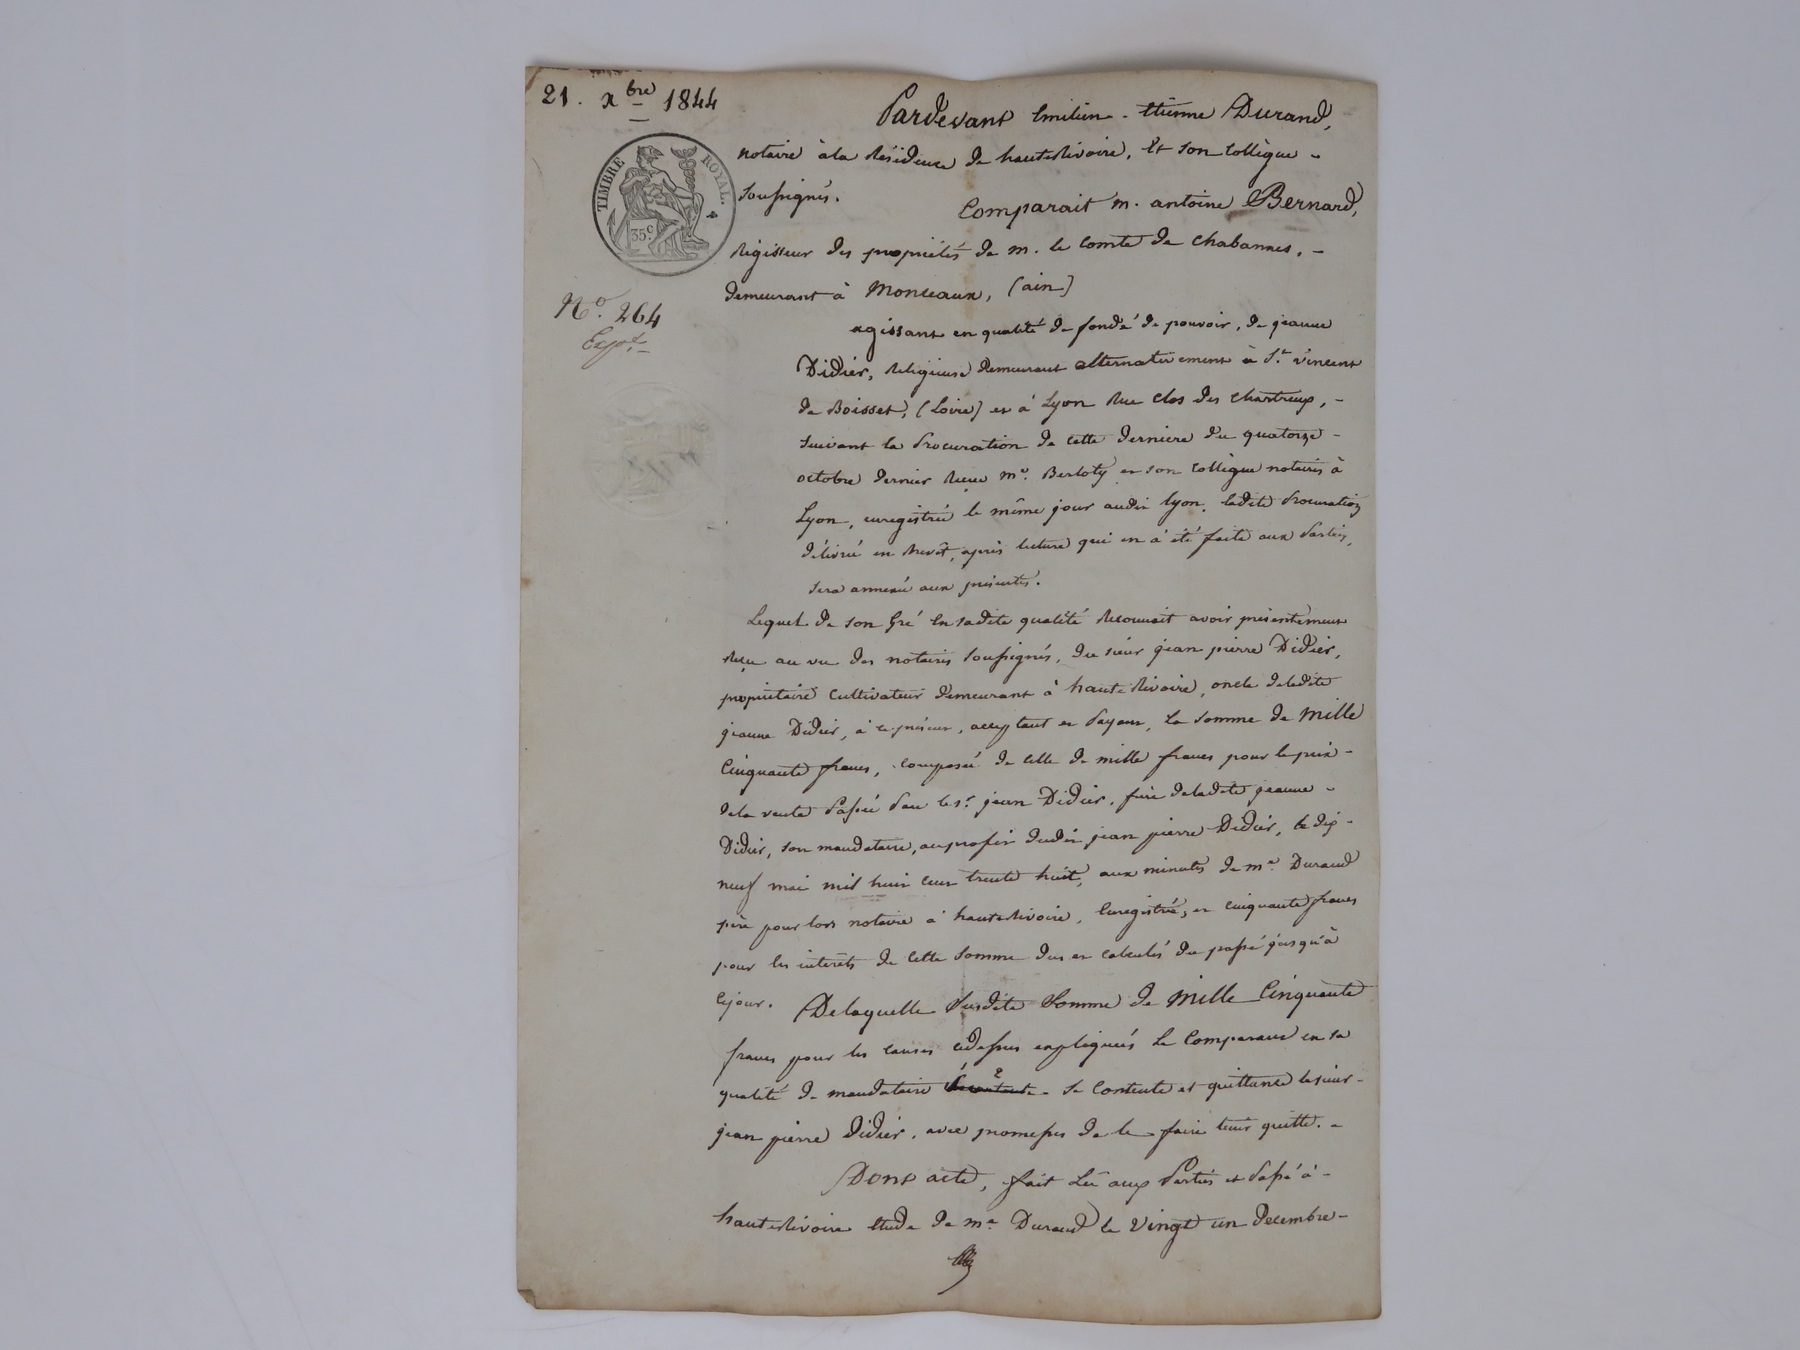 21. xbre 1844
TIMBRE ROYAL.
35c
No. 264
Expt.
Pardevant Emilien-Etienne Durand,
notaire àla Résidence de hauterivoire, Et son Collègue -
soussignés.
Comparait m. antoine Bernard,
Régisseur des propriétés de m. le comte de Chabannes, -
demeurant à Monceaux, (ain)
agissant en qualité de fondé de pouvoir, de jeanne
Didier, Religieuse demeurant alternativement à St. vincent
de Boisset, (Loire) et à Lyon Rue Clos des Chartreux, -
suivant la Procuration de cette dernière du quatorze -
octobre dernier Reçue me. Berloty et son Collègue notaires à
Lyon, enregistrée le même jour audit lyon, ladite Procuration
délivrée en Brevêt, après lecture qui en à été faite aux Parties,
sera annexée aux présentes.
Lequel de son Gré En sadite qualité Reconnait avoir présentement
Reçu au vu des notaires soussignés, du sieur jean pierre Didier,
propriétaire cultivateur demeurant à hauterivoire, oncle deladite
jeanne Didier, à ce présent, acceptant et Payant, La somme de Mille
Cinquante francs, composée de celle de mille francs pour le prix -
dela vente Passée Par le sr. jean Didier, frère deladite jeanne -
Didier, son mandataire, auprofit dudit jean pierre Didier, le dix -
neuf mai mil huit cent trente huit, aux minutes de me. Durand
père pour lors notaire à hauterivoire, Enregistrée, et cinquante francs
pour les intérêts de cette somme dus et calculés du passé jusqu'à
cejour. Delaquelle susdite Somme de Mille Cinquante
francs pour les causes cidessus expliquées Le Comparant en sa
qualité de mandataire se Contente et quittance lesieur -
jean pierre Didier, avec promesses de le faire tenir quitte. -
Dont acte, fait Lû aux Parties et Passé à -
hauterivoire Etude de me. Durand le vingt un decembre -